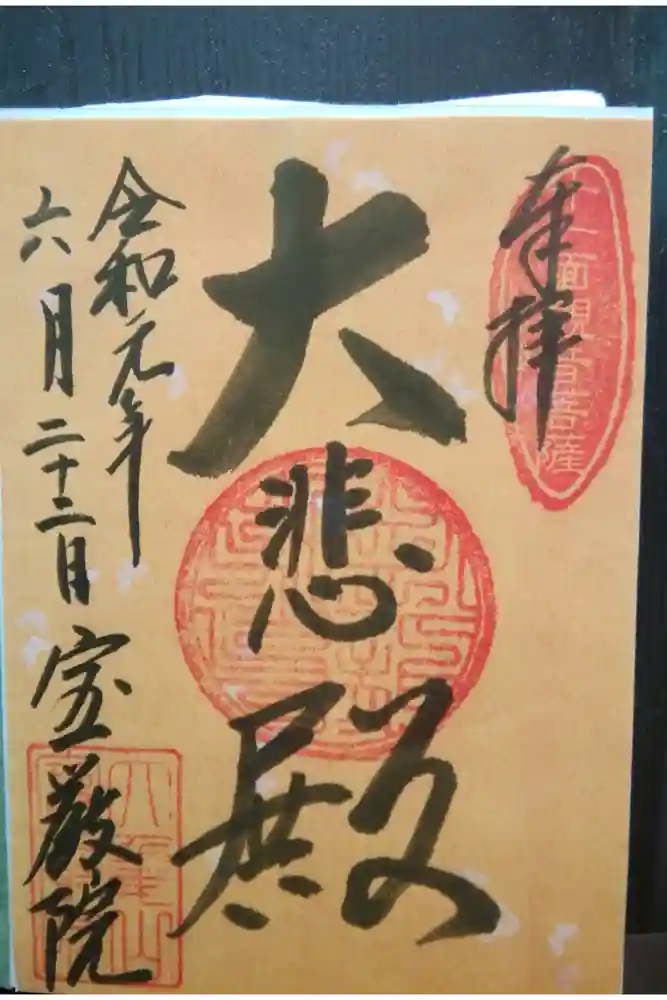 奉拝
十一面観音菩薩
大悲殿
令和元年
六月二十二日
宝厳院